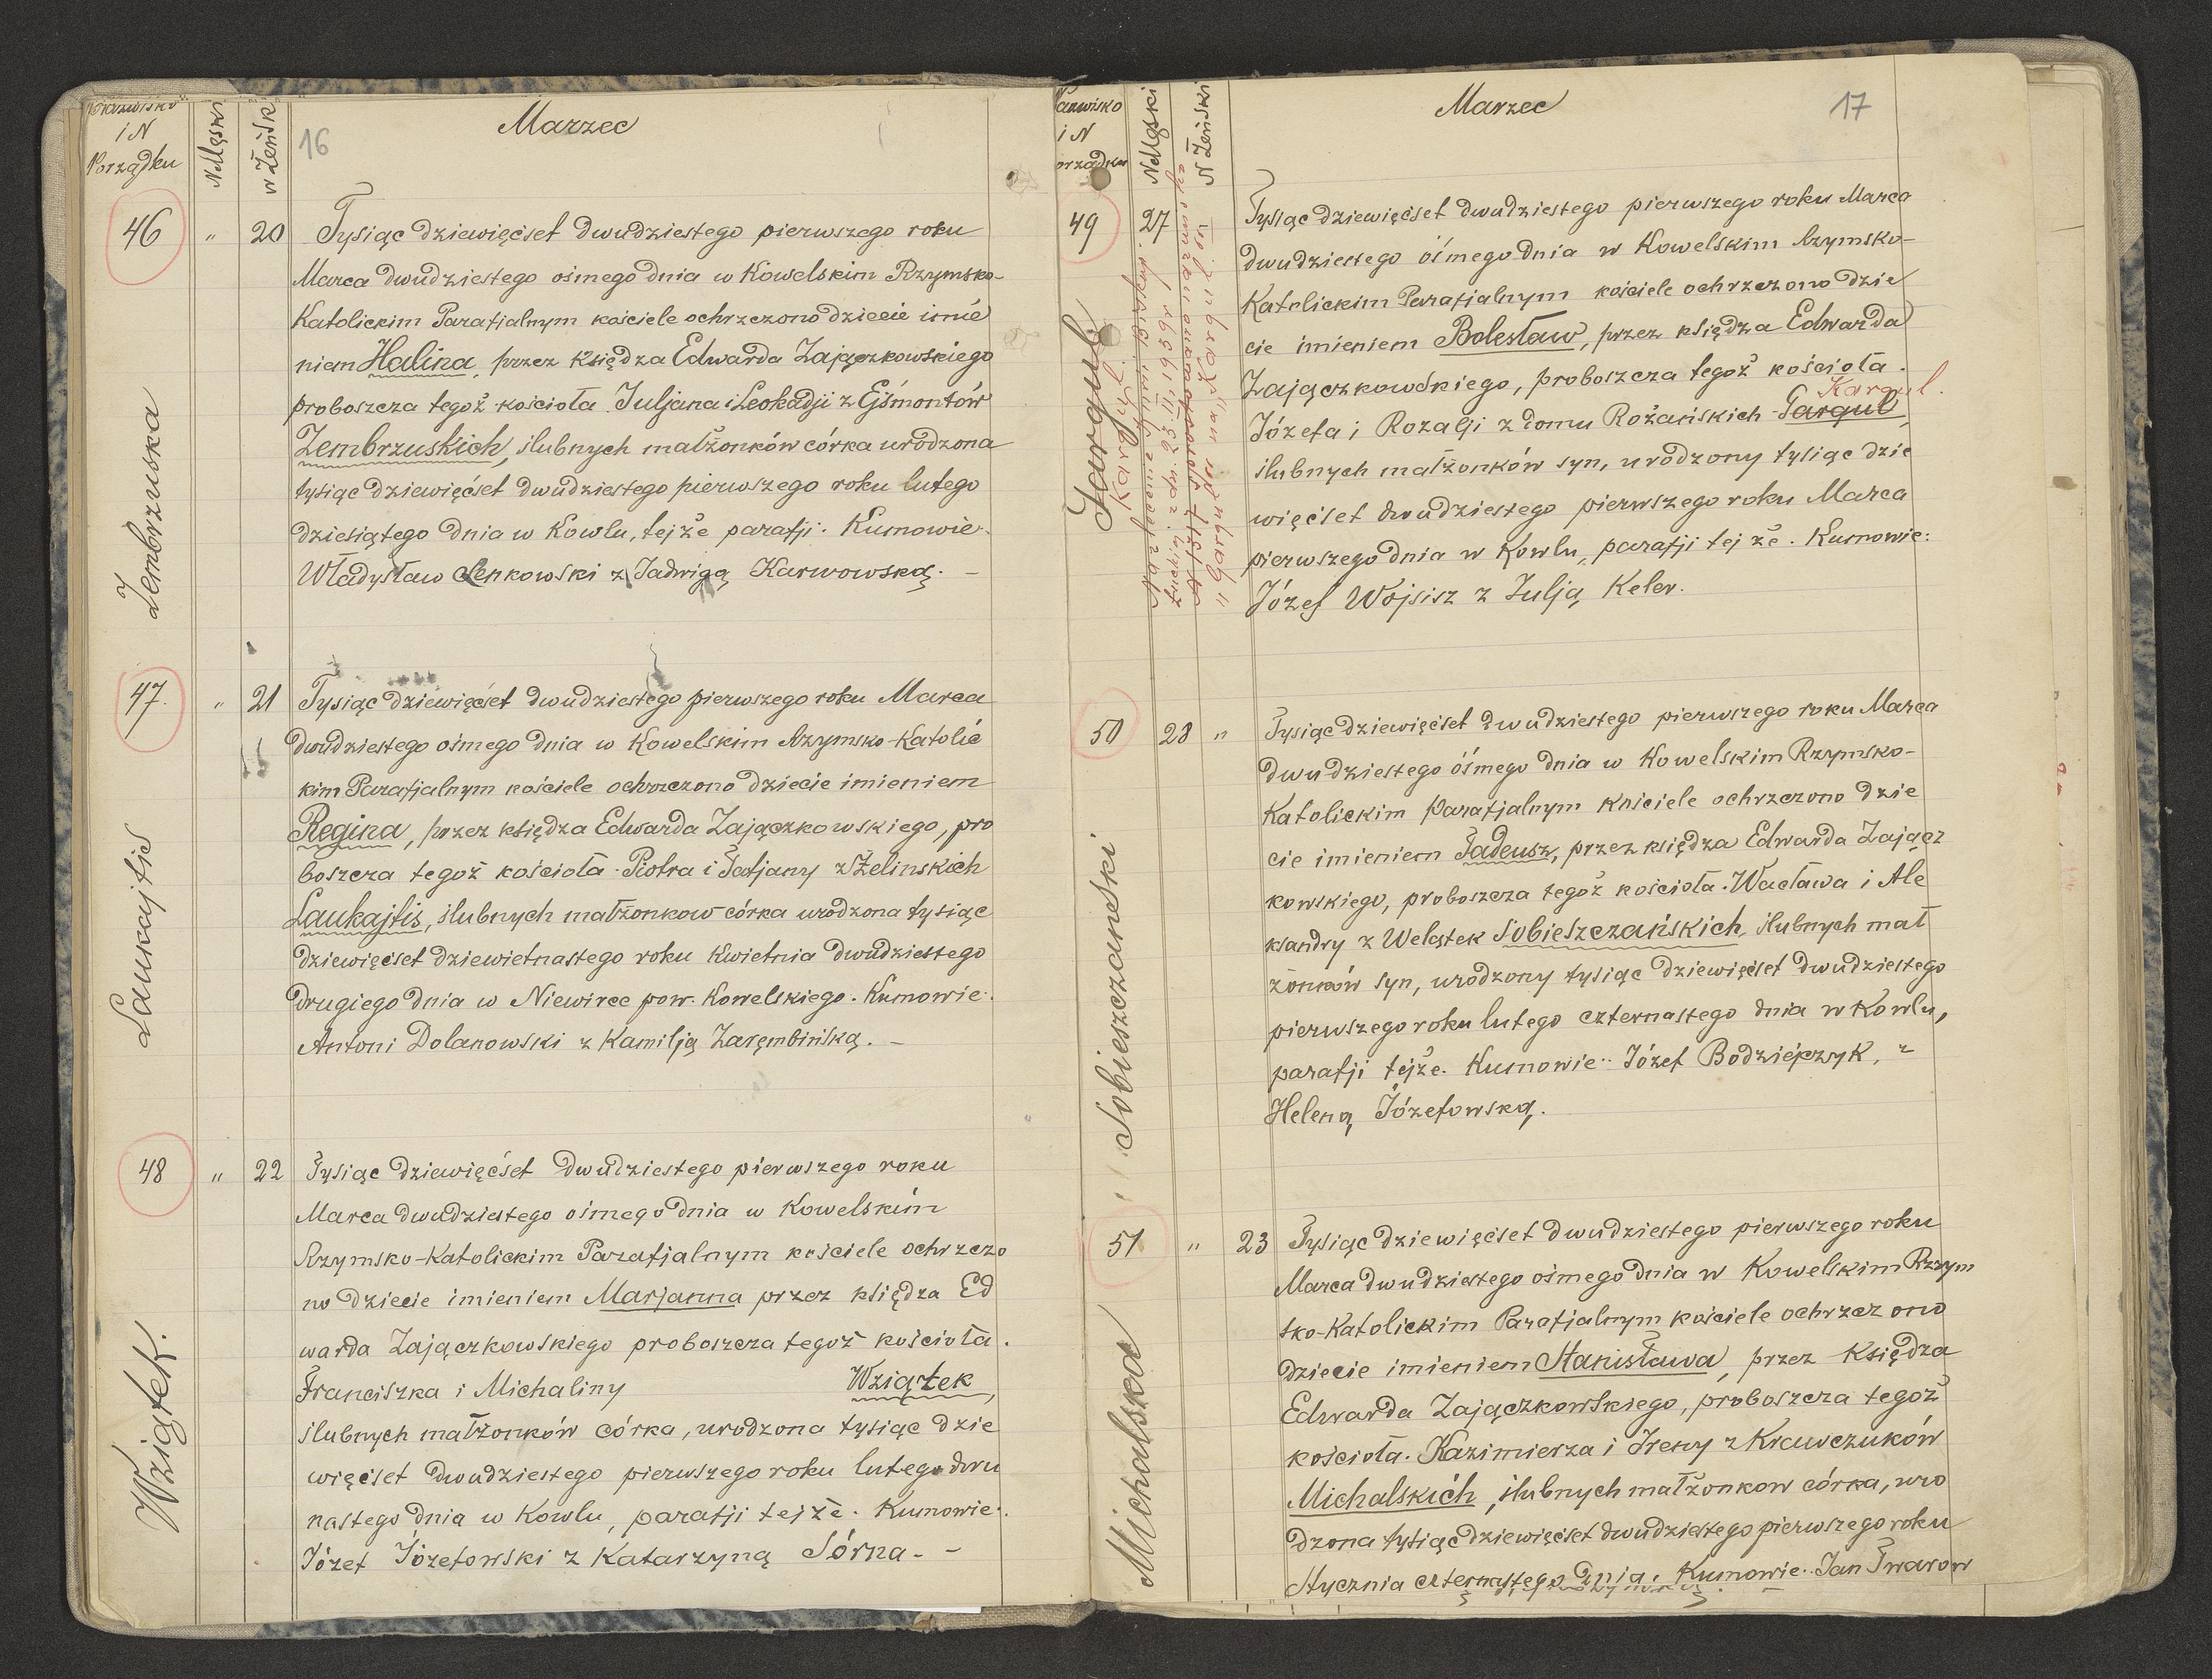 Nazwisko
i N
Porządku
N Męski
N Żeńsk
16
Marzec
46
"
20
Zembrzuska
Tysiąc dziewięćset dwudziestego pierwszego roku
Marca dwudziestego ośmego dnia w Kowelskim Rzymsko-
Katolickim Parafjalnym kościele ochrzczono dziecie imie
niem Halina, przez księdza Edwarda Zajączkowskiego
proboszcza tegoż kościoła. Juljana i Leokadji z Gismontów
Zembrzuskich, ślubnych małżonków córka urodzona
tysiąc dziewięćset dwudziestego pierwszego roku lutego
dziesiątego dnia w Kowlu, tejże parafji. Kumowie:
Władysław Lenkowski z Jadwigą Karwowską. –
47.
"
21
Laukajtis
Tysiąc dziewięćset dwudziestego pierwszego roku Marca
dwudziestego ośmego dnia w Kowelskim Rzymsko-Katolic
kim Parafjalnym kościele ochrzczono dziecie imieniem
Regina, przez księdza Edwarda Zajączkowskiego, pro
boszcza tegoż kościoła. Piotra i Tatjany z Żelinskich
Laukajtis, ślubnych małżonkow córka urodzona tysiąc
dziewięćset dziewietnastego roku Kwietnia dwudziestego
drugiego dnia w Niewirce pow. Kowelskiego. Kumowie:
Antoni Dolanowski z Kamilją Zarębińską. –
48
"
22
Wziątek.
Tysiąc dziewięćset dwudziestego pierwszego roku
Marca dwudziestego ośmego dnia w Kowelskim
Rzymsko-Katolickim Parafjalnym kościele ochrzczo
no dziecie imieniem Marjanna przez księdza Ed
warda Zajączkowskiego proboszcza tegoż kościoła.
Franciszka i Michaliny Wziątek,
ślubnych małżonków córka, urodzona tysiąc dzie
więćset dwudziestego pierwszego roku lutego dwu
nastego dnia w Kowlu, parafji tejże. Kumowie:
Józef Józefowski z Katarzyną Sórna. –
Nazwisko
i N
Porządku
N Męski
N Żeński
Marzec
17
49
27
Gargul
Kargul.
Tysiąc dziewięćset dwudziestego pierwszego roku Marca
dwudziestego óśmego dnia w Kowelskim Rzymsko-
Katolickim Parafjalnym kościele ochrzczono dzie
cie imieniem Bolesław, przez księdza Edwarda
Zajączkowskiego, proboszcza tegoż kościoła.
Kargul.
Józefa i Rozalji z domu Rożańskich Gargul,
ślubnych małżonków syn, urodzony tysiąc dzie
więćset dwudziestego pierwszego roku Marca
pierwszego dnia w Kowlu, parafji tejże. Kumowie:
Józef Wojsisz z Julją Keler.
50
28
"
Sobieszczanski
Tysiąc dziewięćset dwudziestego pierwszego roku Marca
dwudziestego óśmego dnia w Kowelskim Rzymsko-
Katolickim Parafjalnym kościele ochrzczono dzie
cie imieniem Tadeusz, przez księdza Edwarda Zającz
kowskiego, proboszcza tegoż kościoła. Wacława i Ale
ksandry z Welastek Sobieszczańskich, ślubnych mał
żonków syn, urodzony tysiąc dziewięćset dwudziestego
pierwszego roku lutego czternastego dnia w Kowlu,
parafji tejże. Kumowie: Józef Bodziepzyk, z
Heleną Józefowską.
51
"
23
Michalska
Tysiąc dziewięćset dwudziestego pierwszego roku
Marca dwudziestego ośmego dnia w Kowelskim Rzym
sko-Katolickim Parafjalnym kościele ochrzczono
dziecie imieniem Stanisława, przez Księdza
Edwarda Zajączkowskiego, proboszcza tegoż
kościoła. Kazimierza i Ireny z Krawczuków
Michalskich, ślubnych małżonkow córka, uro
dzona tysiąc dziewięćset dwudziestego pierwszego roku
Stycznia czternastego dnia. Kumowie: Jan Twarow